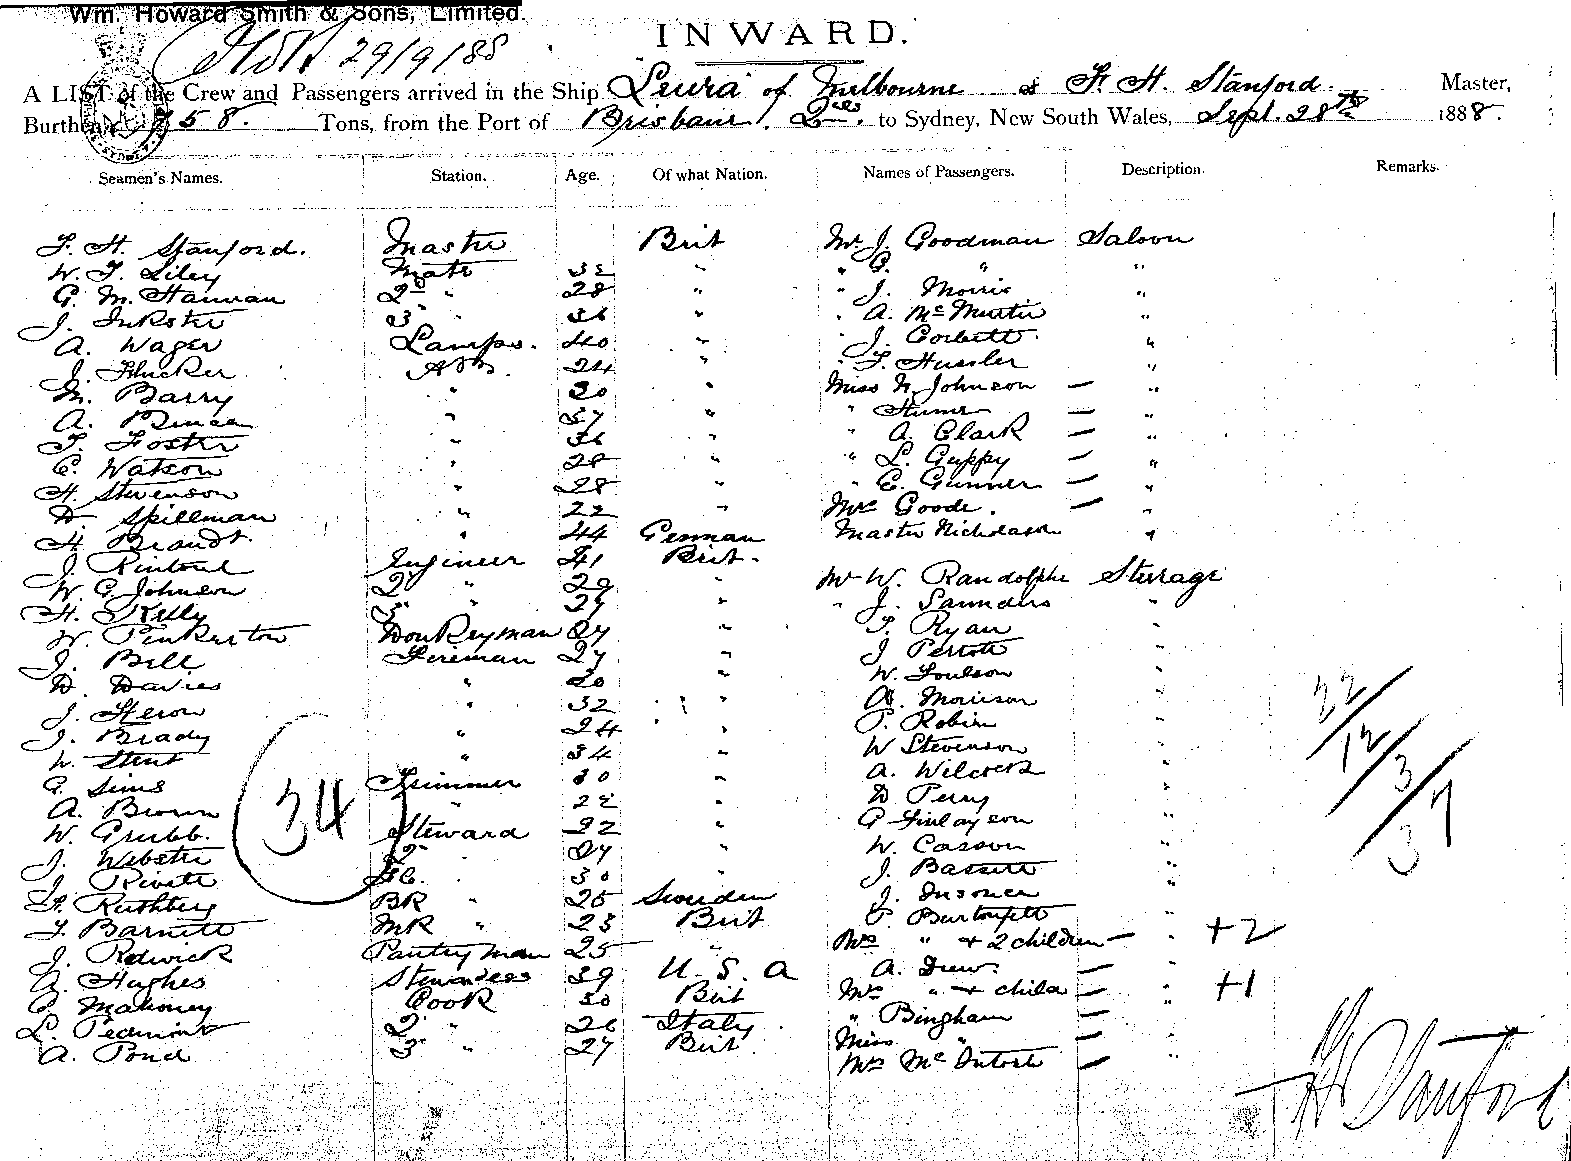 Wm. Howard Smith & Sons, Limited.
29/9/88
INWARD.
A LIST of the Crew and Passengers arrived in the Ship "Leura" of Melbourne F. H. Stanford Master,
Burthen 58. Tons, from the Port of Brisbane to Sydney, New South Wales, Sept. 28th 1888.
Seamen's Names. Station. Age. Of what Nation. Names of Passengers. Description. Remarks.
F. H. Stanford. Master Brit Mr J. Goodman Saloon
W. F. Liley Mate " " "
G. M. Hannan 2nd " 28 " " J. Morris "
J. Inkster 3 " 36 " " A. McMurtie "
A. Wager Lamps. 40 " " J. Corbett "
J. Flucker AB. 24 " " F. Hussler "
M. Barry " 30 " Miss N. Johnson — "
A. " 37 " " — "
F. Foster " 36 " " A. Clark — "
C. Watson " 28 " " L. Guppy — "
H. Stevenson " 28 " " E. Gunner — "
D. Spillman " 22 " Mrs Goode. — "
H. Brandt. " 44 German Master Nicholason "
J. Rintoul Engineer 41 Brit.
W. G. Johnson 2 " 29 " Mr W. Randolphe Sterrage
H. Kelly 3 " 27 " " J. Saunders "
W. Pinkerton Donkeyman 27 " T. Ryan "
J. Bell Fireman 27 " J "
D. Davies " 20 " W. "
J. Heron " 32 " A. Morrison "
J. Brady " 24 " P. Robin "
W. Stent " 34 " W Stevenson "
G. Sims Trimmer 30 " A. Wilcock "
A. Brown " 22 " D Perry "
W. Grubb. Steward 32 " G Finlayson "
J. Webster 2 " 27 " W. Casson "
J. Rivett " 30 " J. Bassett "
F. BR " 25 Sweden J. "
F. Barnett MR " 23 Brit "
J. Redwick Pantryman 25 " Mrs " + 2 children — " +2
A. Hughes Stewardess 39 U. S. A A. Drew. — "
C. Mahoney Cook 30 Brit Mrs " + child — " +1
L. Pedmint 2 " 26 Italy " Bingham — "
A. Pond 3 " 27 Brit Miss " "
Mrs McIntosh — "
34
22/12/3/37
F H Stanford